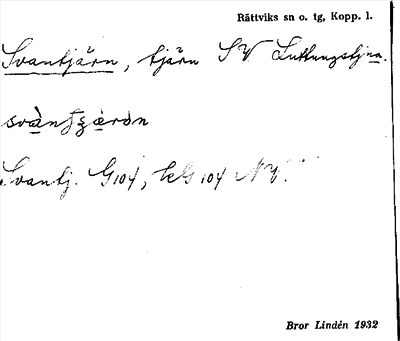 Rättviks sn o. tg, Kopp. l.
Svantjärn, tjärn SV Luttungstjna.
Svantj. G104, tcG 104 NV.
Bror Lindén 1932